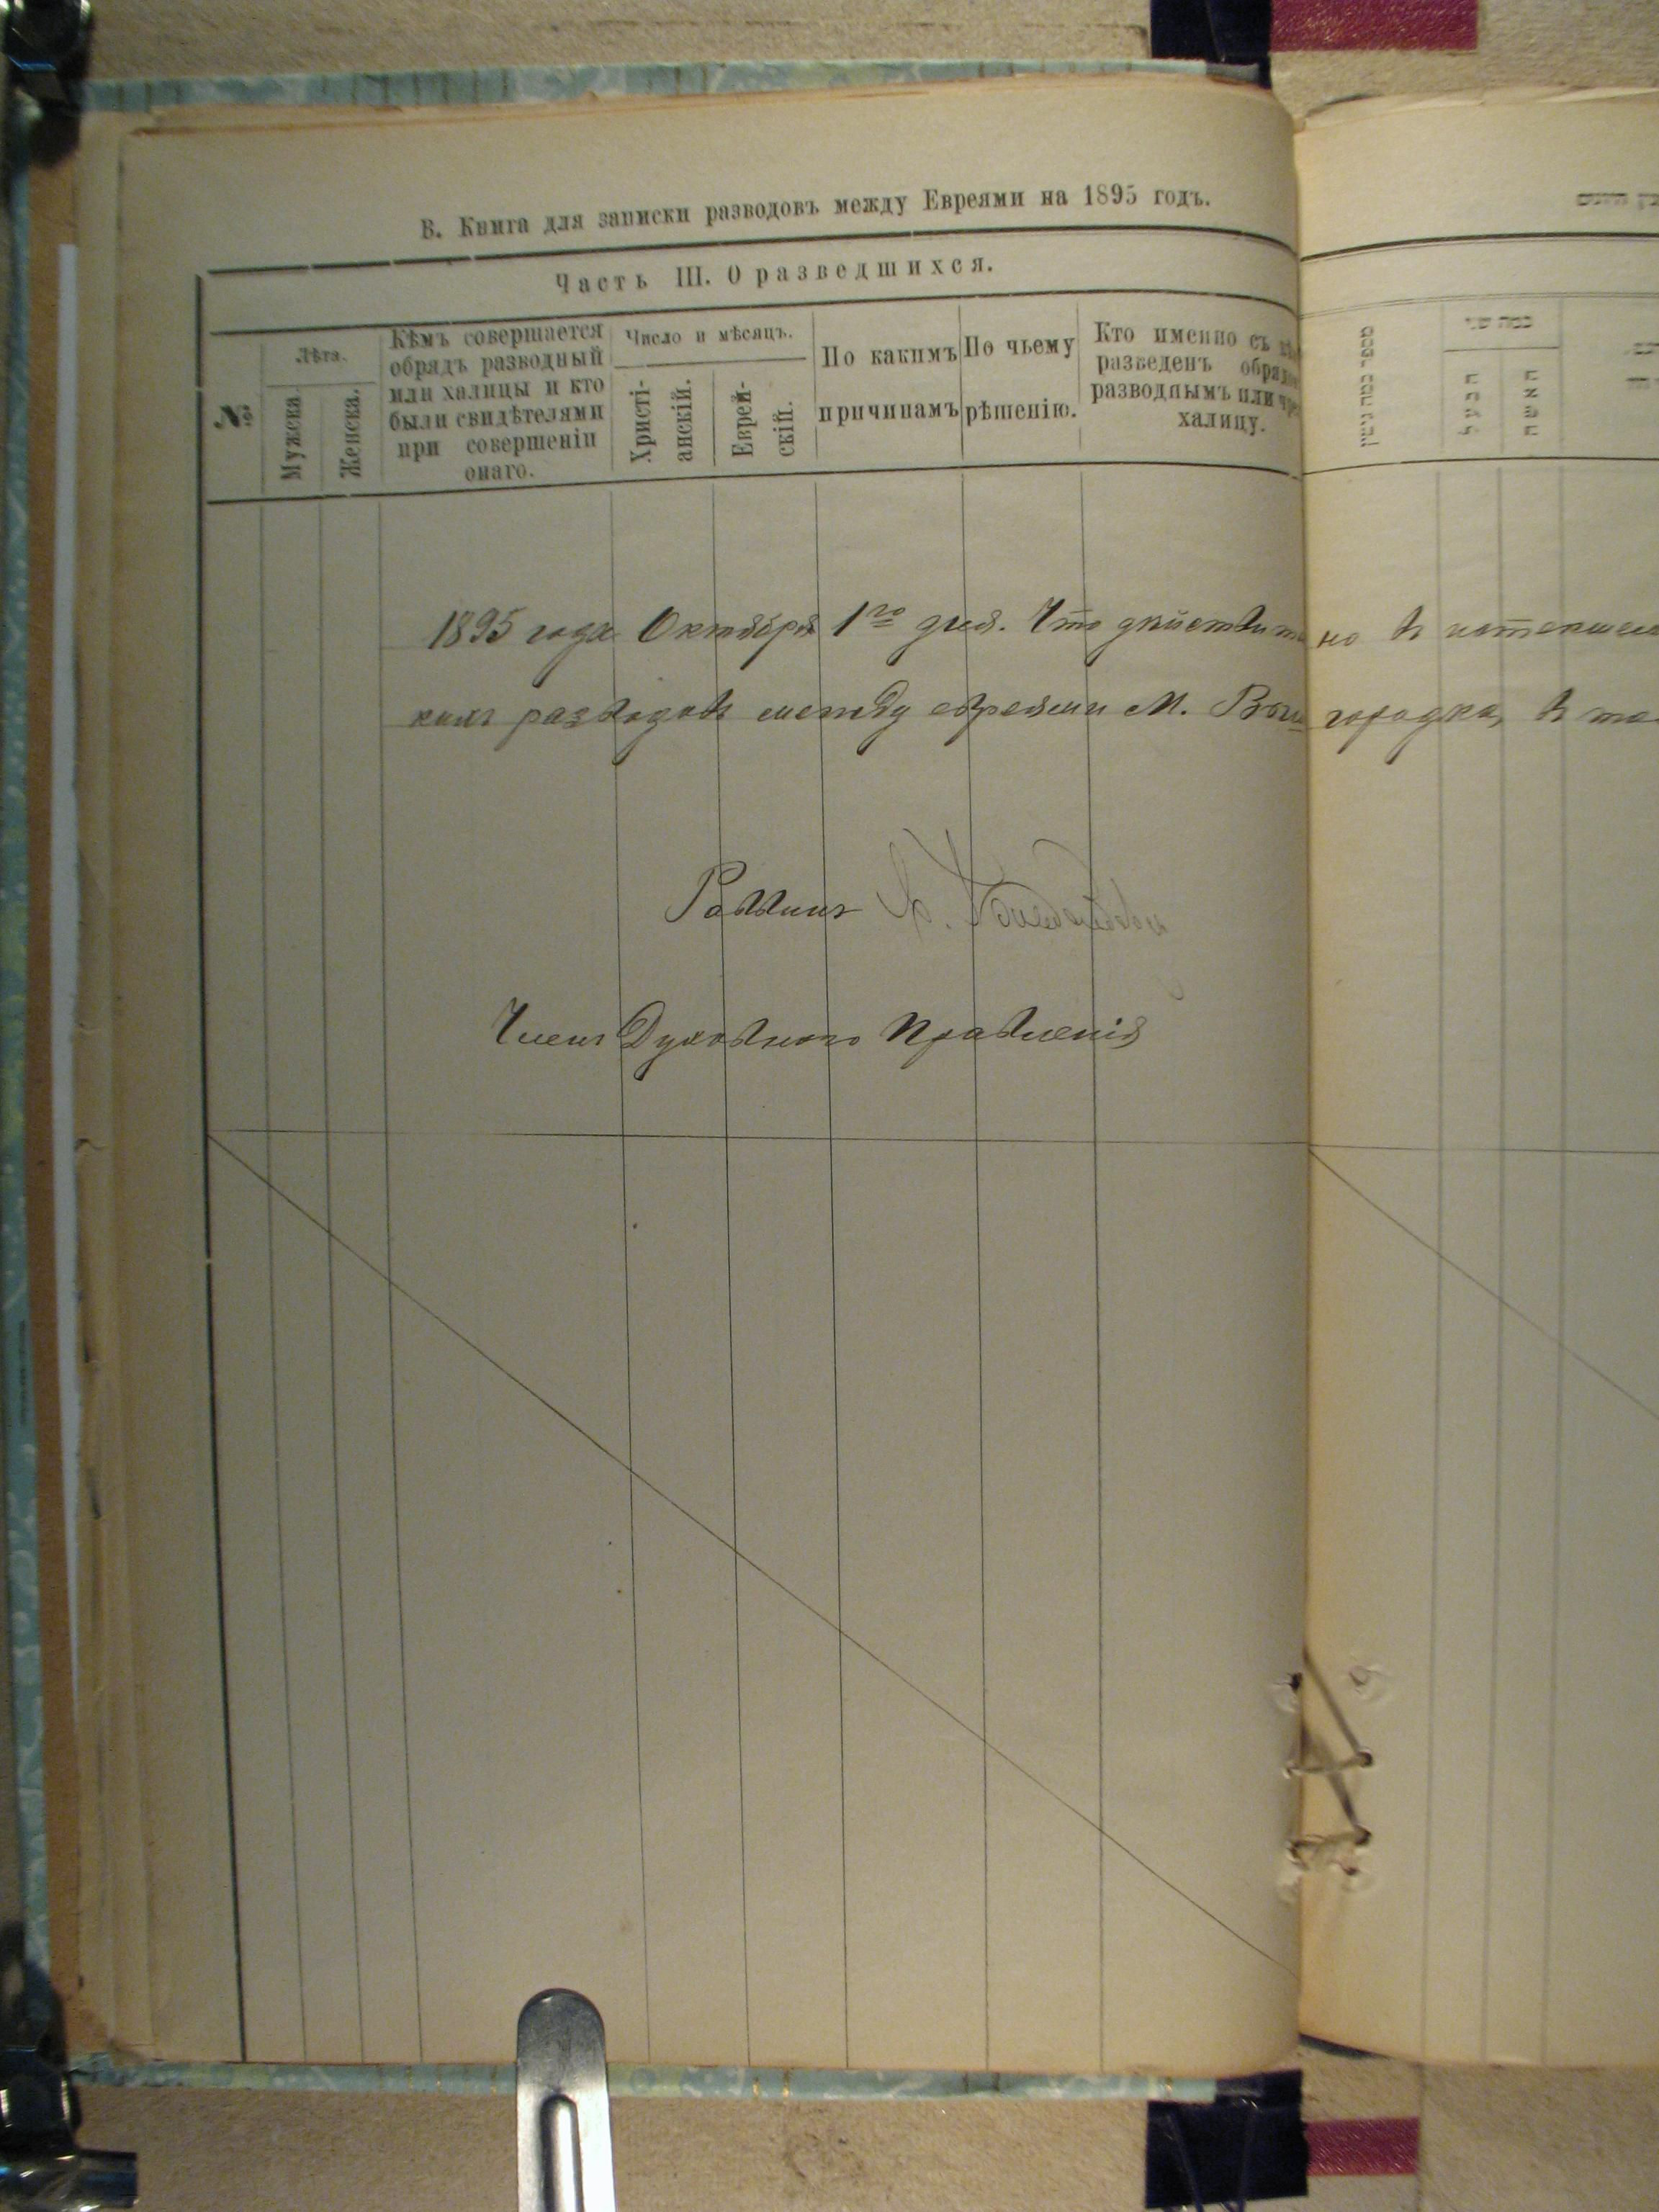 В. Книга для записки разводовъ между Евреями на 1895 годъ.
Часть III. О разведшихся.
№
Лѣта.
Мужеска.
Женска.
Кѣмъ совершается
обрядъ разводный
или халицы и кто
были свидѣтелями
при совершеніи
онаго.
Число и мѣсяцъ.
Христі-
анскій.
Еврей-
скій.
По какимъ
причинамъ
По чьему
рѣшенію.
Кто именно съ
разведенъ
разводнымъ или
халицу.
1895 года Октября 1го дня. Что но в
разводовъ между евреями М. городка, в
Раввинъ
Членъ Духовнаго Правленія
כמה שני
הבעל
האשה